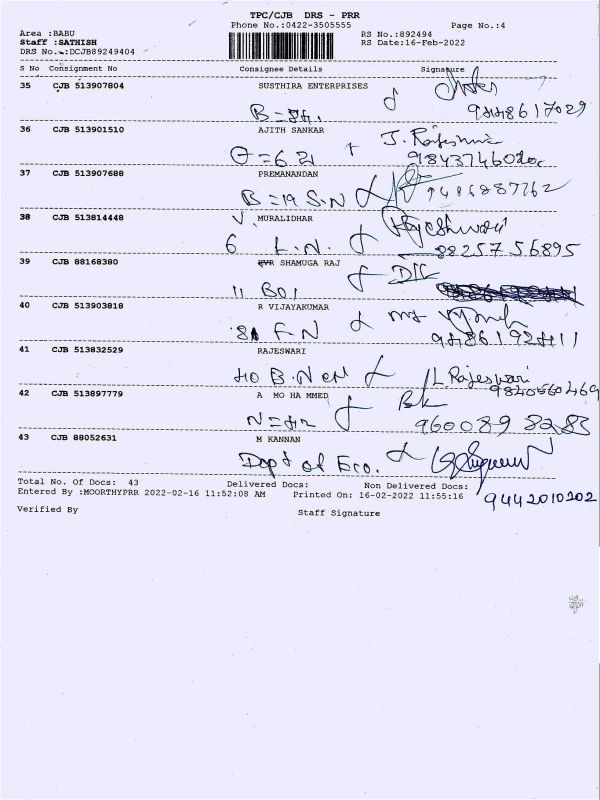 TPC/CJB DRS - PRR
Phone No.:0422-3505555 Page No.:4
Area :BABU RS No.:892494
Staff :SATHISH RS Date:16-Feb-2022
DRS No.:DCJB89249404
S No Consignment No Consignee Details Signature
35 CJB 513907804 SUSTHIRA ENTERPRISES
9448617029
36 CJB 513901510 AJITH SANKAR
37 CJB 513907688 PREMANANDAN
B=19 S.N 9486887762
38 CJB 513814448 MURALIDHAR
6 L.N. Rajeshwari
88257 56895
39 CJB 88168380 SHAMUGA RAJ
11 BOI
40 CJB 513903818 R VIJAYAKUMAR
F-N
9486192411
41 CJB 513832529 RAJESWARI
40 B.N L.Rajeswari
42 CJB 513897779 A MO HA MMED
960089 8283
43 CJB 88052631 M KANNAN
Dept of Eco.
Total No. Of Docs: 43 Delivered Docs: Non Delivered Docs:
Entered By :MOORTHYPRR 2022-02-16 11:52:08 AM Printed On: 16-02-2022 11:55:16
9442010202
Verified By Staff Signature